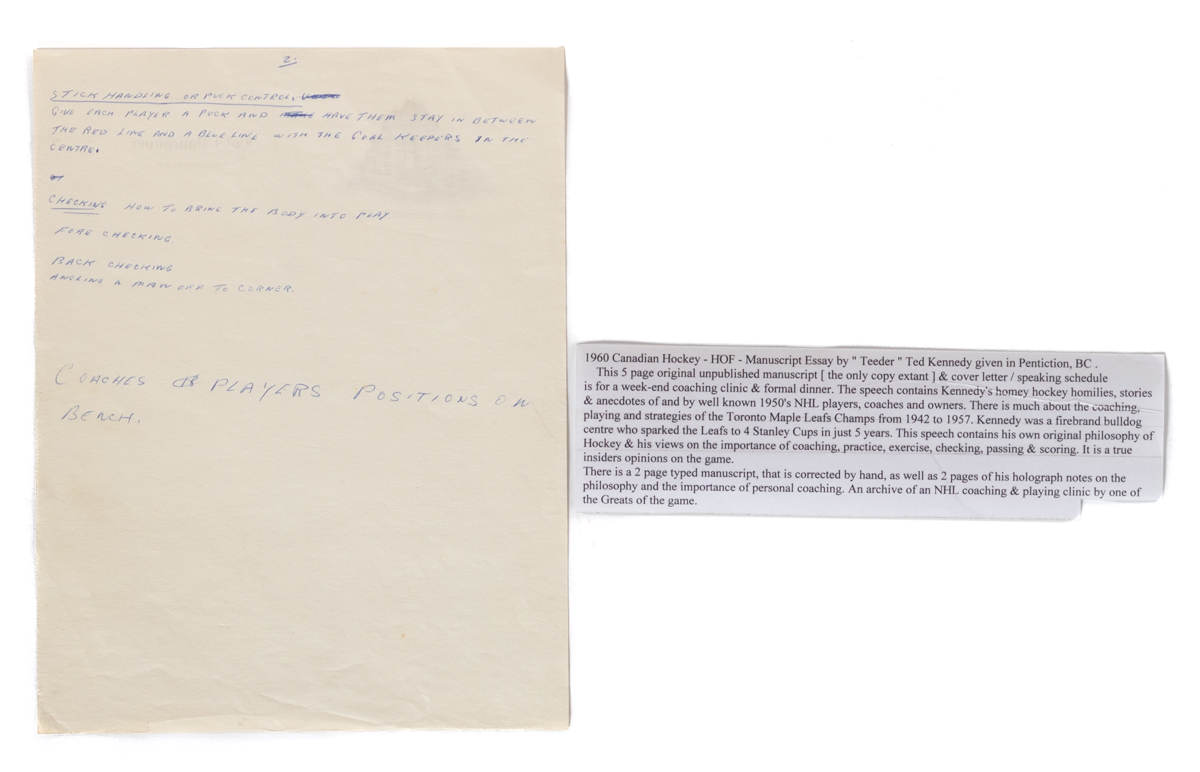 2.
STICK HANDLING OR PUCK CONTROL.
GIVE EACH PLAYER A PUCK AND HAVE THEM STAY IN BETWEEN
THE RED LINE AND A BLUE LINE WITH THE GOAL KEEPERS IN THE
CENTRE.
CHECKING HOW TO BRING THE BODY INTO PLAY
FORE CHECKING.
BACK CHECKING
ANGLING A MAN OFF TO CORNER.
COACHES & PLAYERS POSITIONS ON
BENCH.
1960 Canadian Hockey - HOF - Manuscript Essay by " Teeder " Ted Kennedy given in Pentiction, BC .
This 5 page original unpublished manuscript [ the only copy extant ] & cover letter / speaking schedule
is for a week-end coaching clinic & formal dinner. The speech contains Kennedy's homey hockey homilies, stories
& anecdotes of and by well known 1950's NHL players, coaches and owners. There is much about the coaching,
playing and strategies of the Toronto Maple Leafs Champs from 1942 to 1957. Kennedy was a firebrand bulldog
centre who sparked the Leafs to 4 Stanley Cups in just 5 years. This speech contains his own original philosophy of
Hockey & his views on the importance of coaching, practice, exercise, checking, passing & scoring. It is a true
insiders opinions on the game.
There is a 2 page typed manuscript, that is corrected by hand, as well as 2 pages of his holograph notes on the
philosophy and the importance of personal coaching. An archive of an NHL coaching & playing clinic by one of
the Greats of the game.